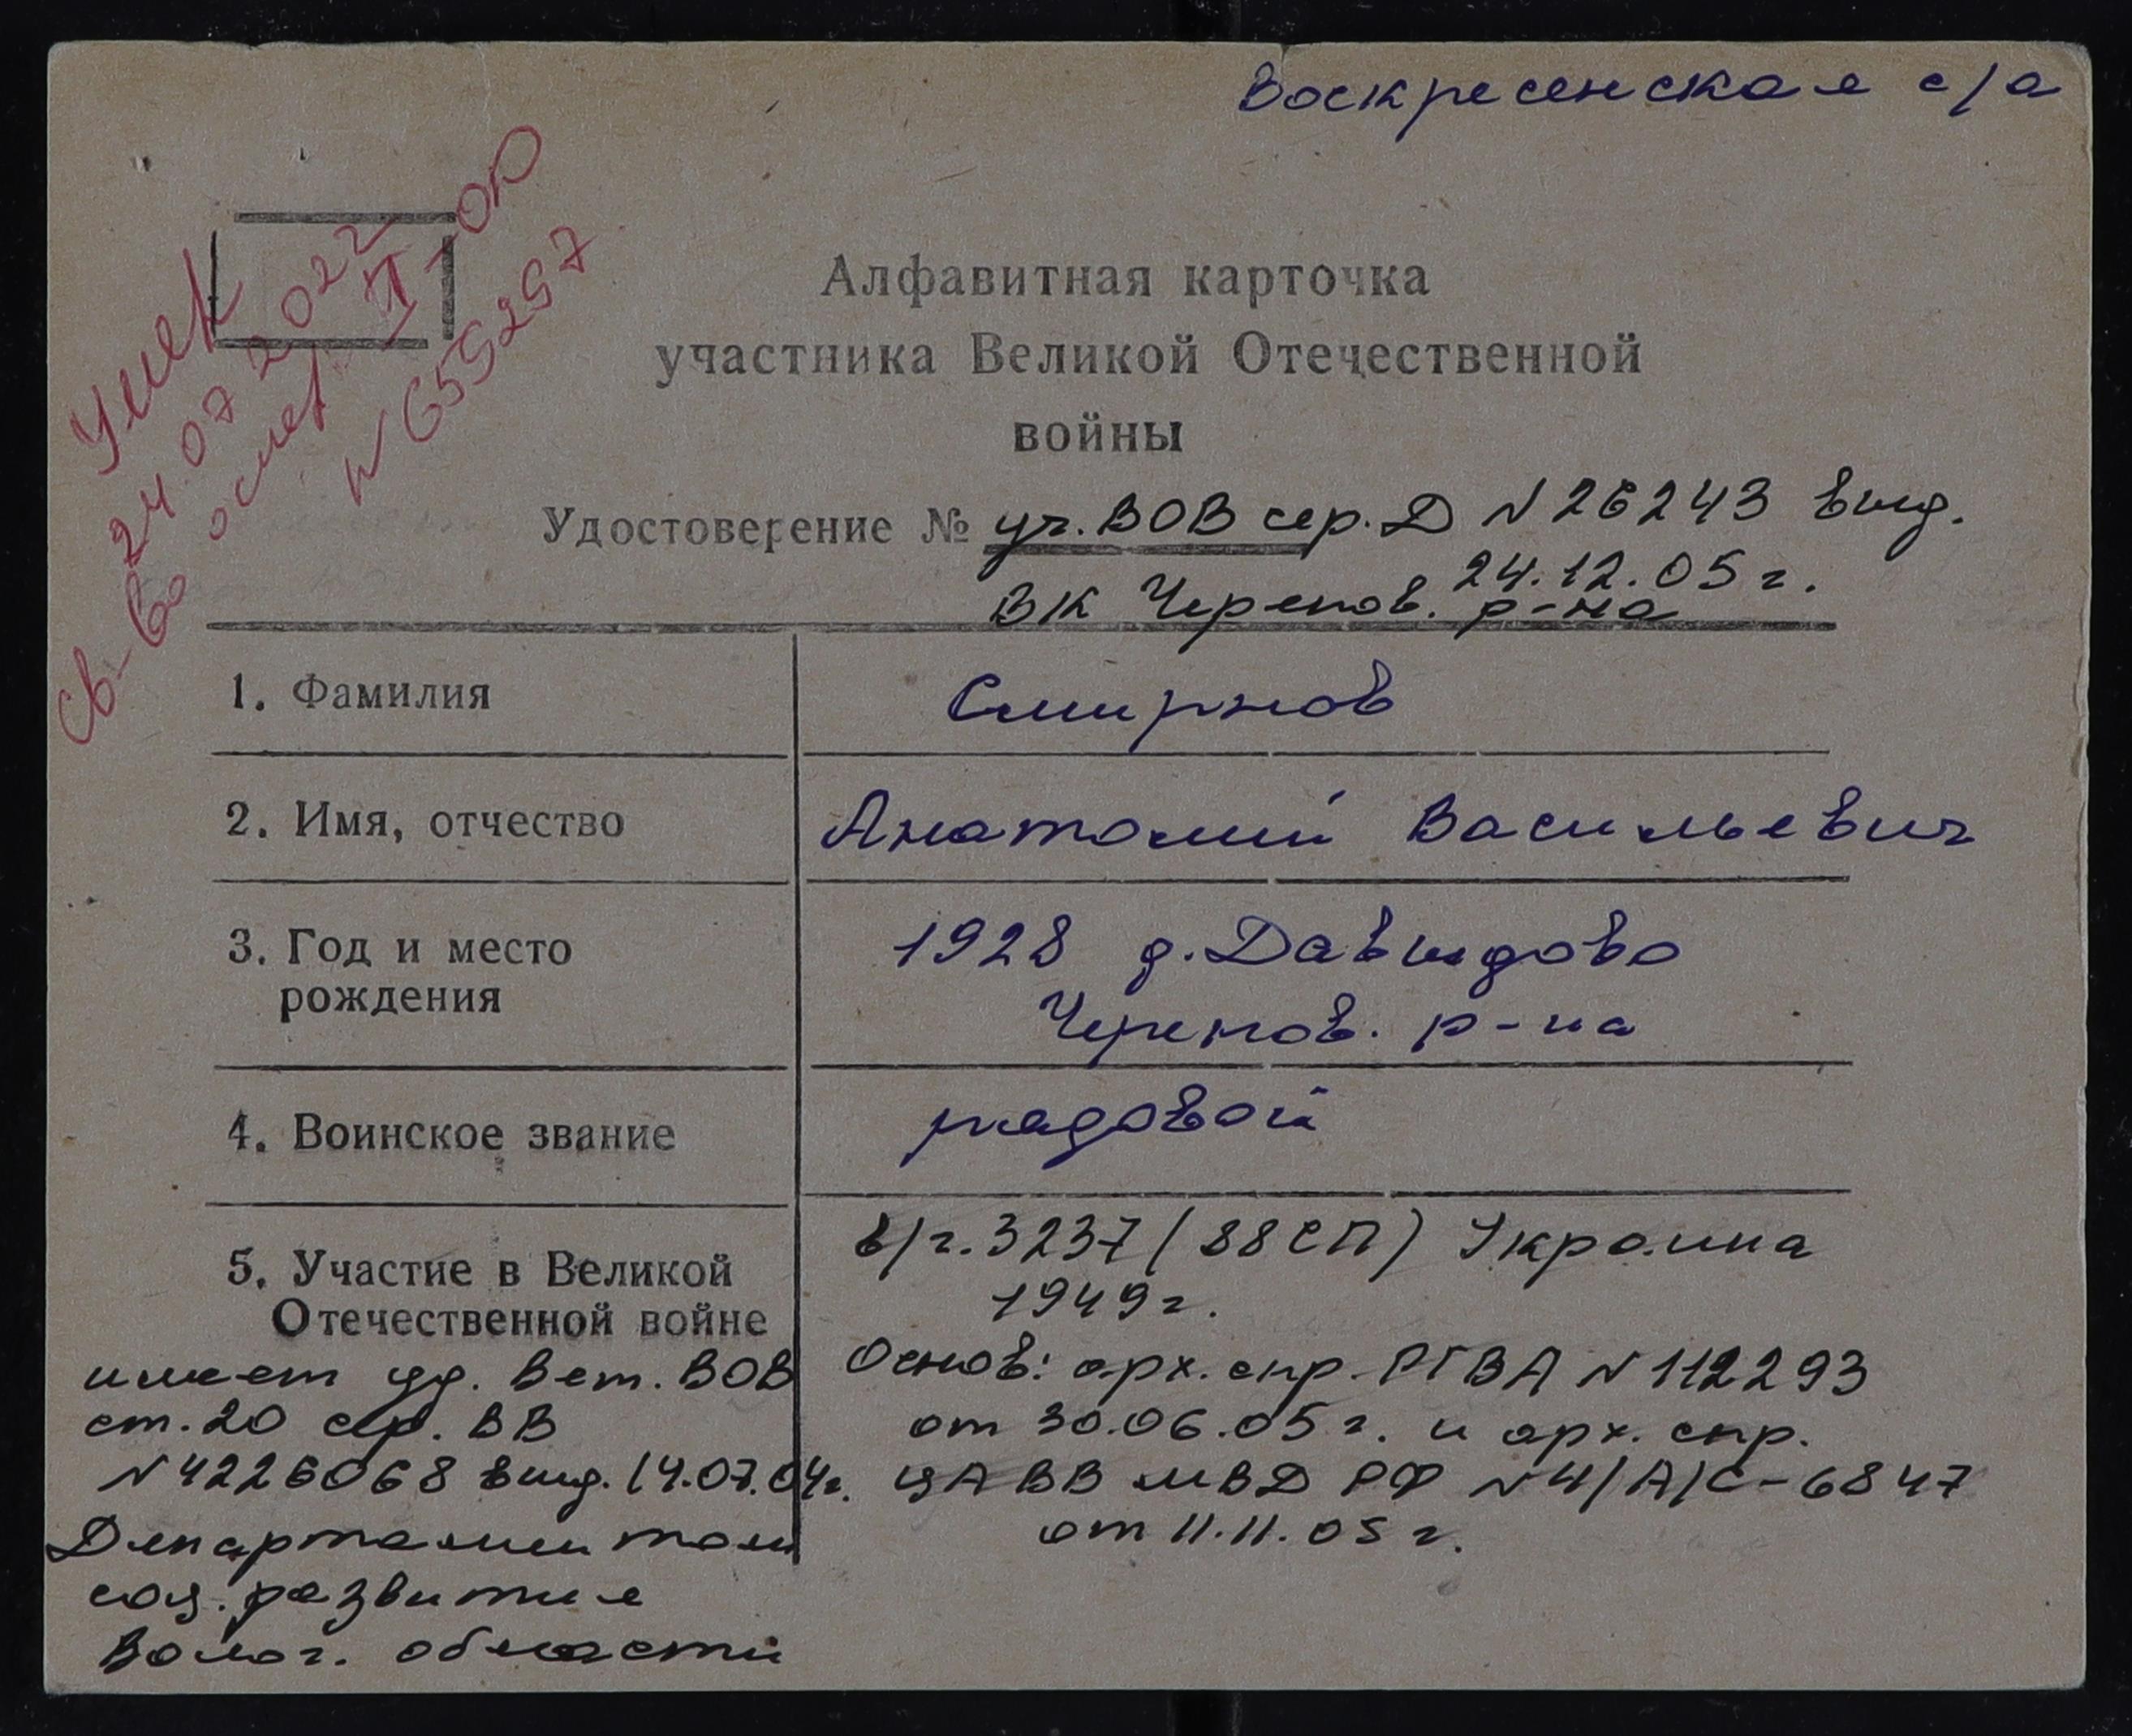 Воскресенская с/а
Умер
24.07.2022
св-во о смер. II-ОБ
N 655297
Алфавитная карточка
участника Великой Отечественной
войны
Удостоверение № уч. ВОВ сер. Д N 26243 выд.
24.12.05 г.
ВК Черепов. р-на
1. Фамилия Смирнов
2. Имя, отчество Анатолий Васильевич
3. Год и место 1928 д. Давыдово
рождения Черепов. р-на
4. Воинское звание рядовой
5. Участие в Великой в/ч. 3237 (88 СП) Украина
Отечественной войне 1949 г.
имеет уд. Вет. ВОВ Основ: арх. спр. РГВА N 112293
ст. 20 сер. ВВ от 30.06.05 г. и арх. спр.
N 4226068 выд. 14.07.04г. ЦА ВВ МВД РФ N 4/А/С-6847
Департаментом от 11.11.05 г.
соц. развития
Волог. области